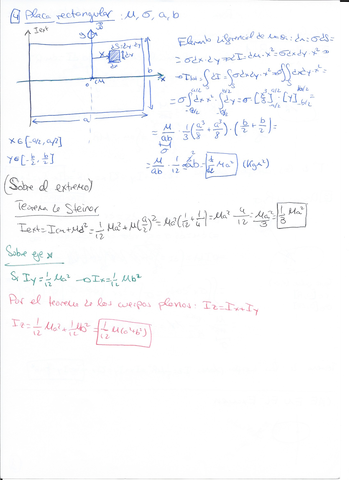 4) Placa rectangular: M, σ, a, b
Iext
Elemento infinitesimal de masa: dm = σdS =
= σdx·dy ⇒ dI = dm·x² = σdxdy x² ⇒
⇒ Icm = ∫dI = ∫σdxdy·x² = σ∫∫dxdy·x² =
= σ∫dx x²·∫dy = σ·[x³/3]·[y] =
= M/ab · 1/3 (a³/8 + a³/8)·(b/2 + b/2) =
= M/ab · 1/12 a³b = 1/12 Ma² (Kgm²)
x ∈ [-a/2, a/2]
y ∈ [-b/2, b/2]
(Sobre el extremo)
Teorema de Steiner
Iext = Icm + Md² = 1/12 Ma² + M(a/2)² = Ma²(1/12 + 1/4) = Ma² 4/12 = Ma²/3 = 1/3 Ma²
Sobre eje x
Si Iy = 1/12 Ma² → Ix = 1/12 Mb²
Por el teorema de los cuerpos planos: Iz = Ix + Iy
Iz = 1/12 Ma² + 1/12 Mb² = 1/12 M(a²+b²)